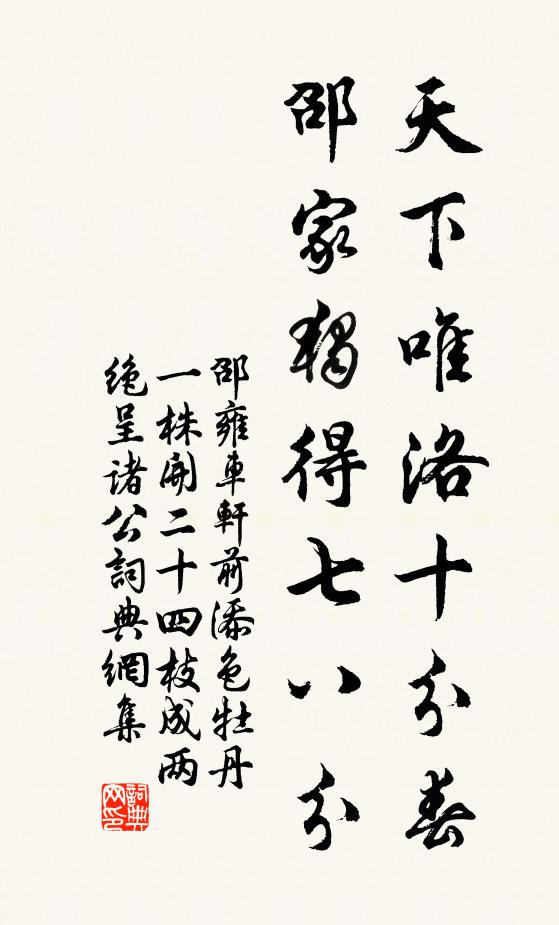 天下唯洛十分春
邵家獨得七八分
邵雍車軒前添色牡丹
一株開二十四枝成两
絶呈诸公詞典網集
詞典网印